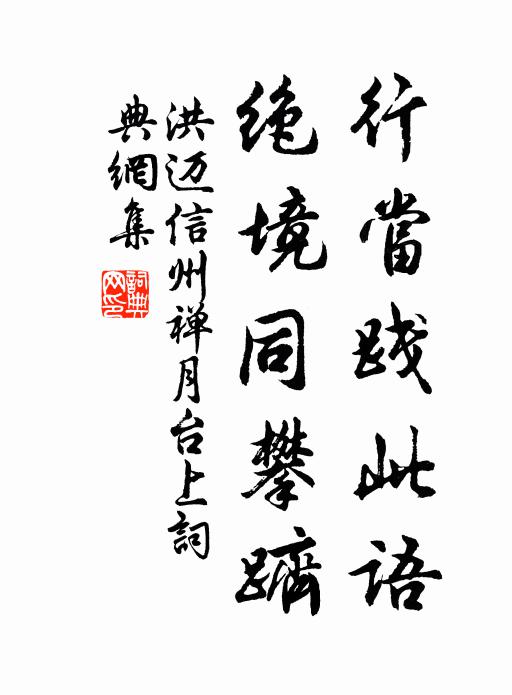 行當踐此語
絶境同攀躋
洪迈信州禅月台上詞
典網集
詞典网印